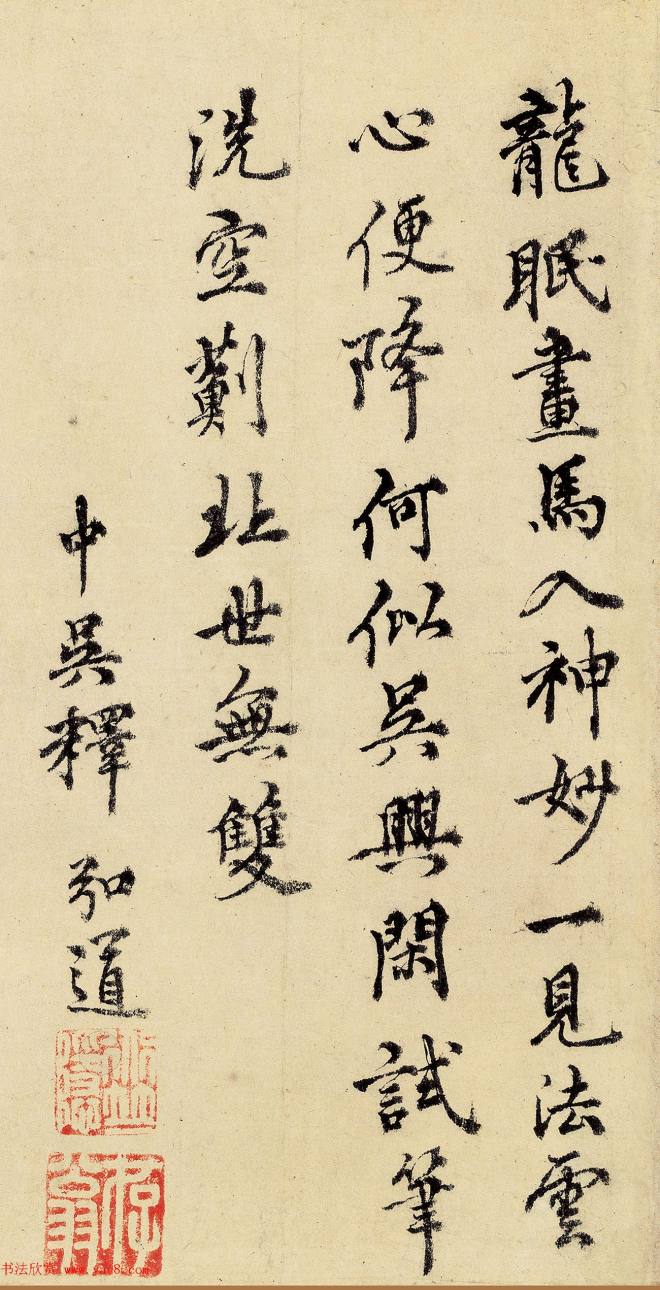 龍眠畫馬入神妙一見法雲
心便降何似吳興閑試筆
洗空薊北世無雙
中吳釋 弘道
书法欣赏